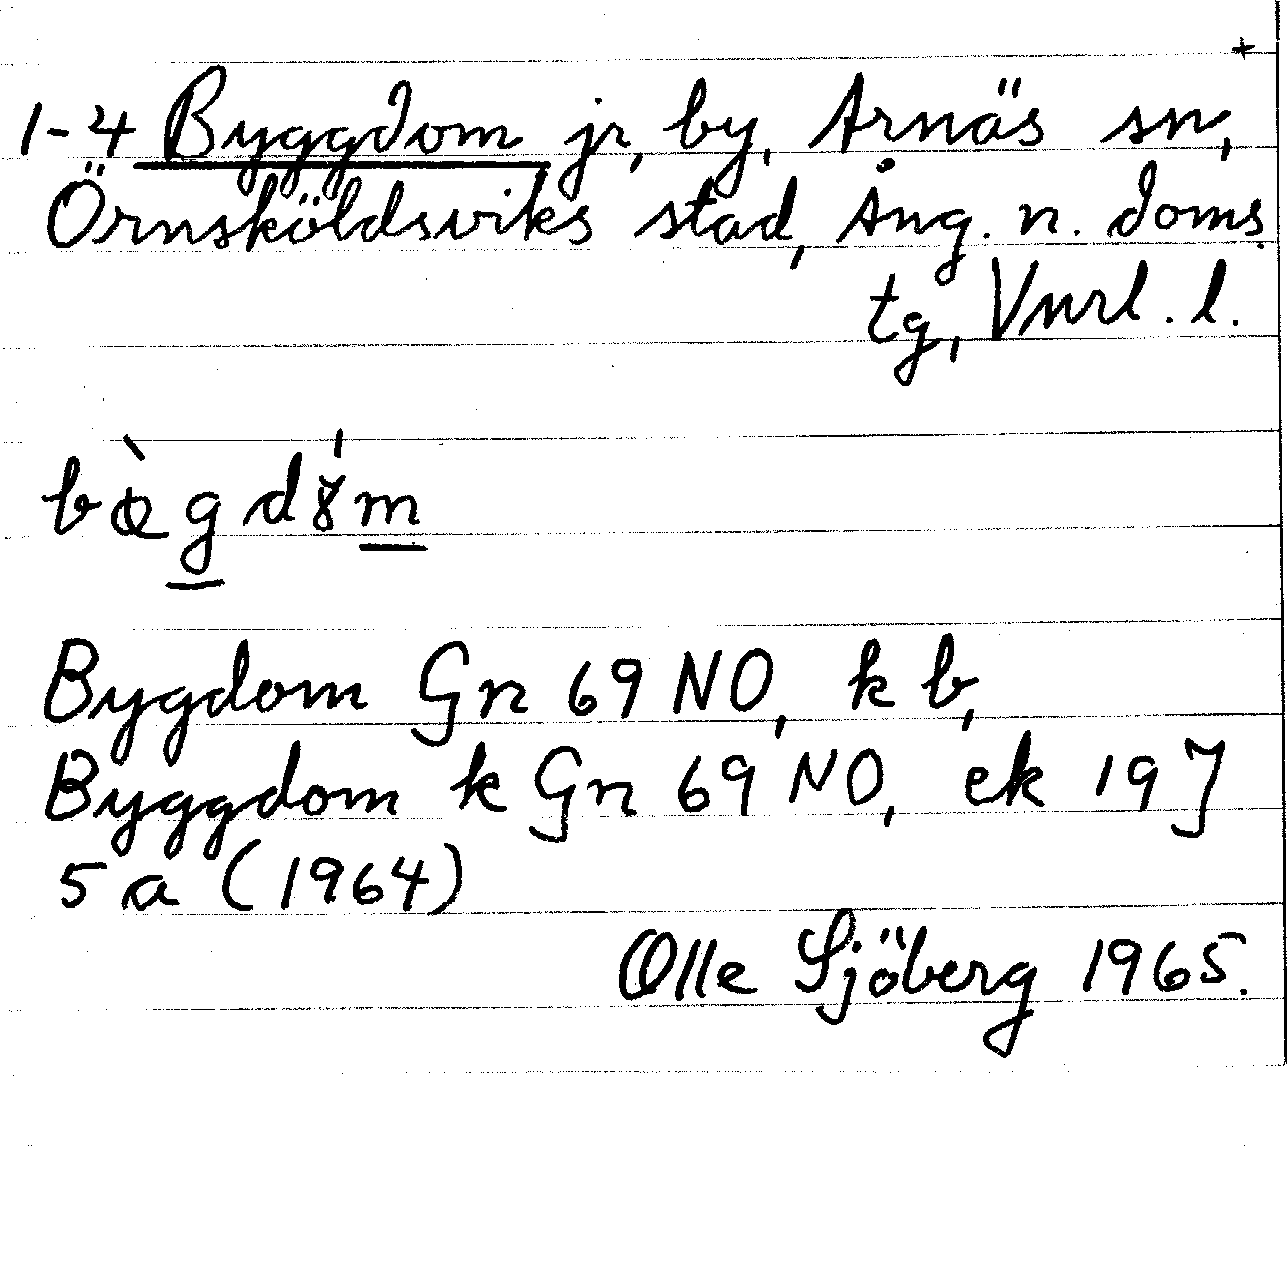 +
1-4 Byggdom jr, by, Arnäs sn,
Örnsköldsviks stad, Ång. n. doms.
tg, Vnrl. l.
Bygdom Gn 69 NO, k b,
Byggdom k Gn 69 NO, ek 19 J
5 a (1964)
Olle Sjöberg 1965.